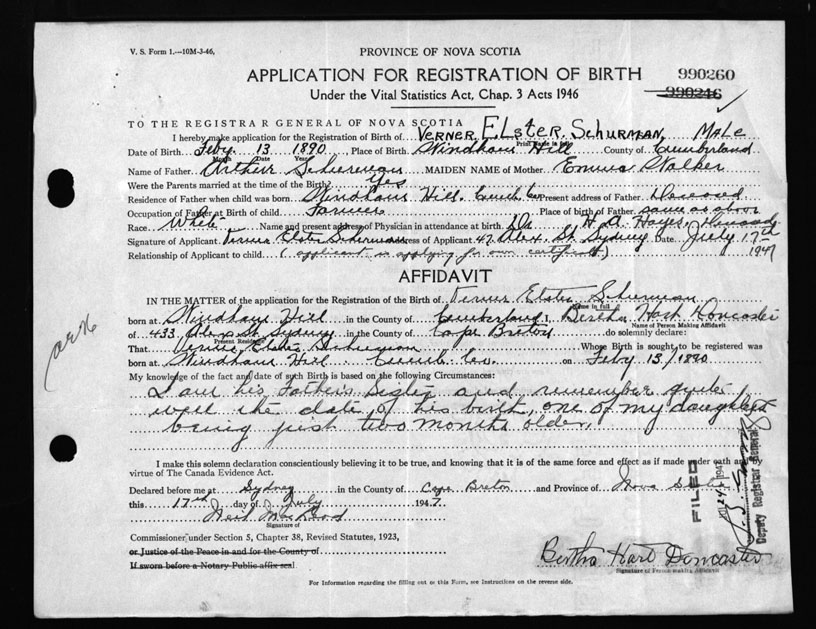 V. S. Form 1.—10M-3-46,
PROVINCE OF NOVA SCOTIA
APPLICATION FOR REGISTRATION OF BIRTH
990260
Under the Vital Statistics Act, Chap. 3 Acts 1946
990246
TO THE REGISTRAR GENERAL OF NOVA SCOTIA
I hereby make application for the Registration of Birth of VERNER ELSTER SCHURMAN, MALE
Print Name in full
Date of Birth Feby 13 1890, Place of Birth Windham Hill County of Cumberland
Month Date Year
Name of Father Arthur Schurman MAIDEN NAME of Mother Emma Walker
Were the Parents married at the time of the Birth? Yes
Residence of Father when child was born Windham Hill, Present address of Father Deceased
Occupation of Father at Birth of child Farmer Place of birth of Father same as above
Race White Name and present address of Physician in attendance at birth Dr. Hayes, Deceased
Signature of Applicant Verner Elster Schurman Address of Applicant 47 Alex. St. Sydney Date July 17th 1947
Relationship of Applicant to child (applicant is applying for own certificate)
AFFIDAVIT
IN THE MATTER of the application for the Registration of the Birth of Verner Elster Schurman
Name in full
born at Windham Hill in the County of Cumberland, Bertha Hart Doncaster
Name of Person Making Affidavit
of 433 St. Sydney in the County of Cape Breton do solemnly declare:
Present Residence
That Verner Elster Schurman Whose Birth is sought to be registered was
born at Windham Hill Cumb. Co. on Feby 13/1890
My knowledge of the fact and date of such Birth is based on the following Circumstances:
I am his Father's Sister and remember quite
well the date of his birth, one of my daughters
being just two months older.
I make this solemn declaration conscientiously believing it to be true, and knowing that it is of the same force and effect as if made under oath and by
virtue of The Canada Evidence Act.
Declared before me at Sydney in the County of Cape Breton and Province of Nova Scotia
this 17th day of July 1947.
Neil MacLeod
Signature of
Commissioner under Section 5, Chapter 38, Revised Statutes, 1923,
or Justice of the Peace in and for the County of
If sworn before a Notary Public affix seal
Bertha Hart Doncaster
Signature of Person making Affidavit
For Information regarding the filling out of this Form, see Instructions on the reverse side.
FILED
24 1947
Deputy Registrar General